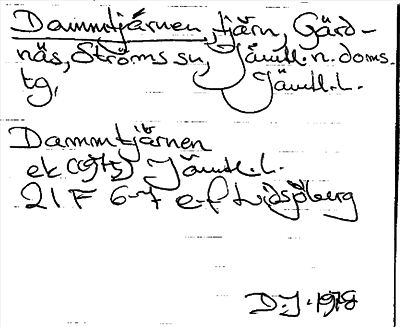 Dammtjärnen, tjärn, Gärd-
näs, Ströms sn, Jämtl. n. doms.
tg, Jämtl. l.
Dammtjärnen
ek (1975) Jämtl. l.
21 F 6-7 e-f Lidsjöberg
D.J. 1978